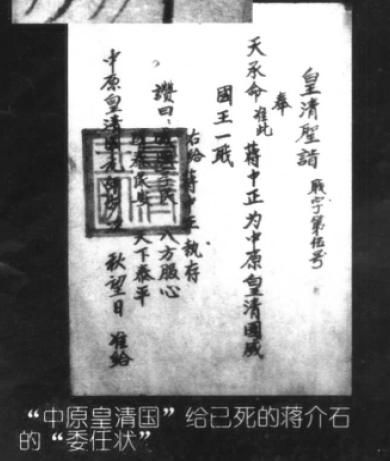 皇清聖詣 职字第伍号
奉
天承命准此 蔣中正为中原皇清國威
國王一职
右给蔣中正執存
讚曰 八方服心
天下泰平
中原皇清國元 秋望日 准給
“中原皇清国”给已死的蒋介石
的“委任状”